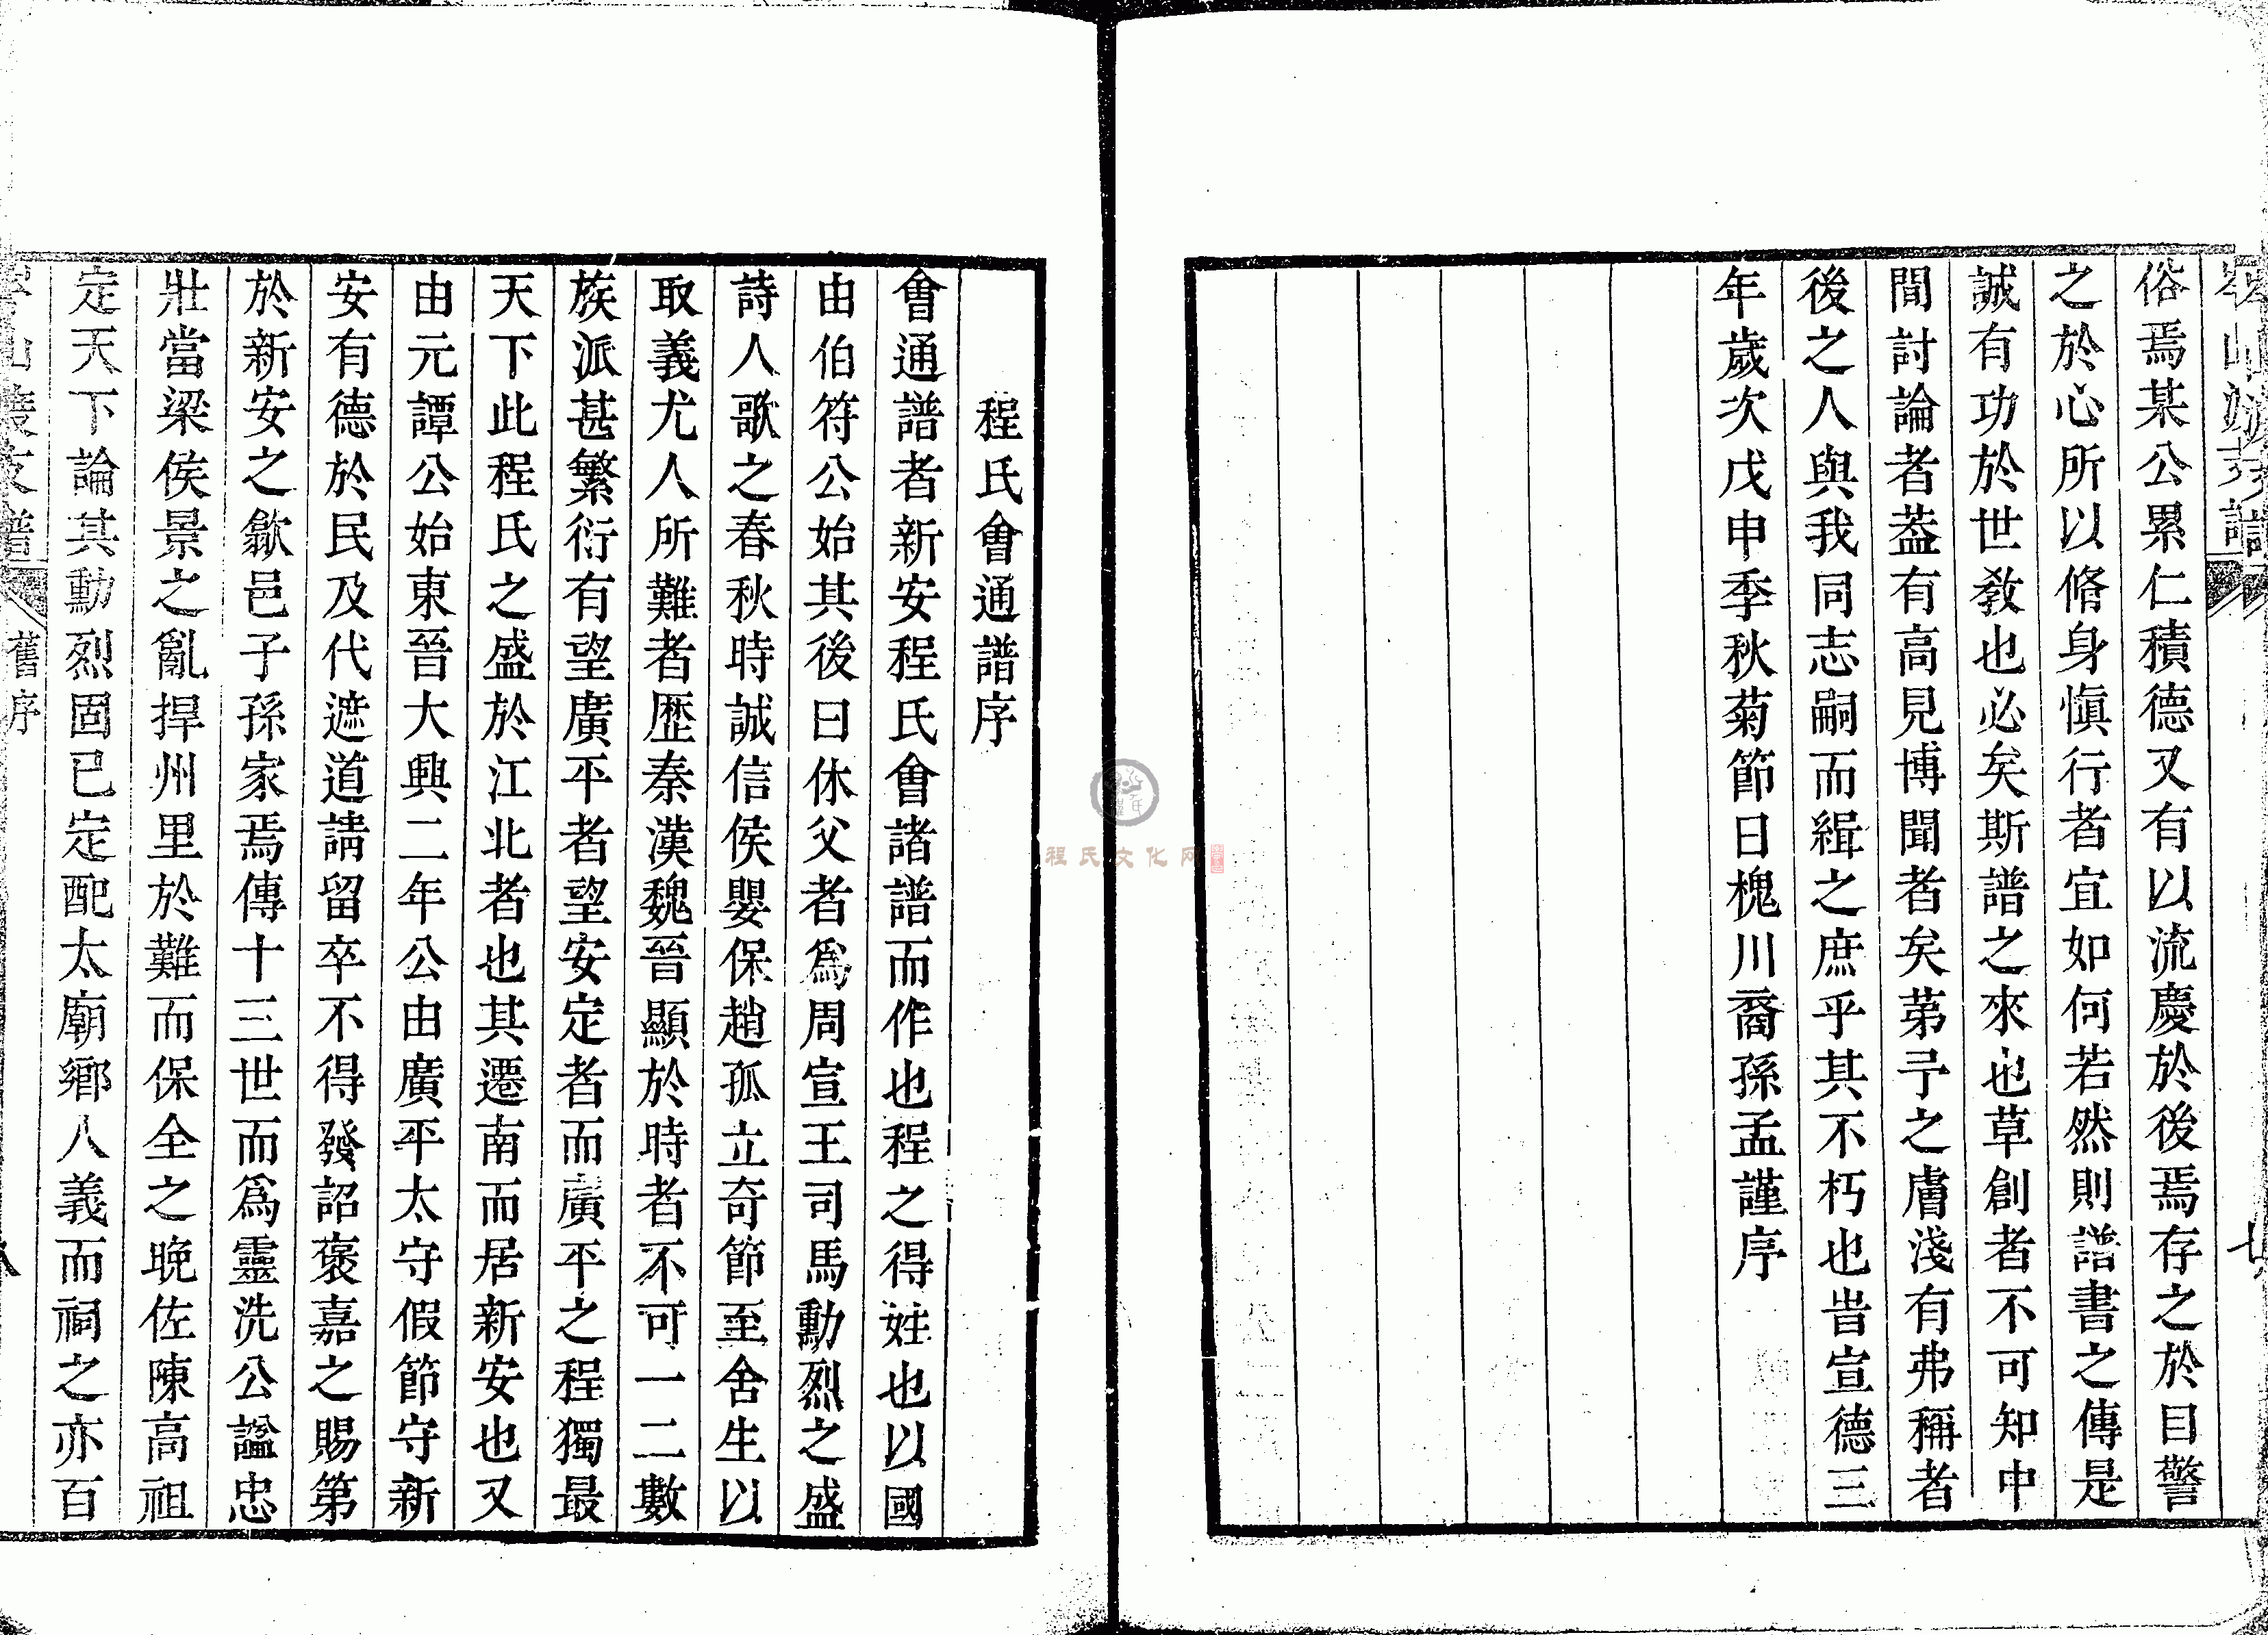 俗焉某公累仁積德又有以流慶於後焉存之於目警
之於心所以脩身慎行者宜如何若然則譜書之傳是
誠有功於世敎也必矣斯譜之來也草創者不可知中
間討論者葢有高見博聞者矣苐予之膚淺有弗稱者
後之人與我同志嗣而緝之庶乎其不朽也旹宣德三
年歲次戊申季秋菊節日槐川裔孫孟謹序
程氏會通譜序
會通譜者新安程氏會諸譜而作也程之得姓也以國
由伯符公始其後曰休父者爲周宣王司馬勳烈之盛
詩人歌之春秋時誠信侯嬰保趙孤立奇節至舍生以
取義尤人所難者歷秦漢魏晉顯於時者不可一二數
族派甚繁衍有望廣平者望安定者而廣平之程獨最
天下此程氏之盛於江北者也其遷南而居新安也又
由元譚公始東晉大興二年公由廣平太守假節守新
安有德於民及代遮道請留卒不得發詔褒嘉之賜第
於新安之歙邑子孫家焉傳十三世而爲靈洗公謚忠
壯當梁侯景之亂捍州里於難而保全之晚佐陳高祖
定天下論其勳烈固已定配太廟鄉人義而祠之亦百
支譜
舊序
程氏文化网